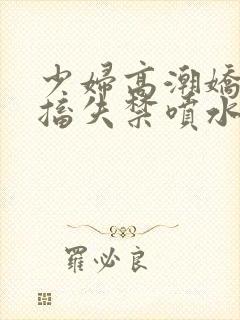 少婦高潮嬌
搐失禁噴水
羅必良